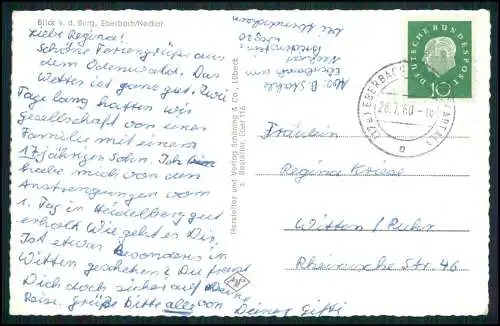 Blick v. d. Burg, Eberbach/Neckar
Liebe Regina!
Schöne Feriengrüße aus
dem Odenwald. Das
Wetter ist ganz gut. Zwei
Tage lang hatten wir
Gesellschaft von einer
Familie mit einem
17jährigen Sohn. Ich
habe mich von den
Anstrengungen vom
1. Tag in Heidelberg gut
erholt. Wie geht es Dir.
Ist etwas besonderes in
Witten geschehen? Du freust
Dich doch sicher auf Deine
Reise. grüße bitte alle von
Deiner Gifti
Abs. B.
Eberbach am
Neckar
Hersteller und Verlag Schöning & Co., Lübeck
s Bestellnr. Eber 116
DEUTSCHE BUNDESPOST
10
EBERBACH
26.7.60-16
e
Fräulein
Regina Kriese
Witten / Ruhr
Rheinische Str. 46